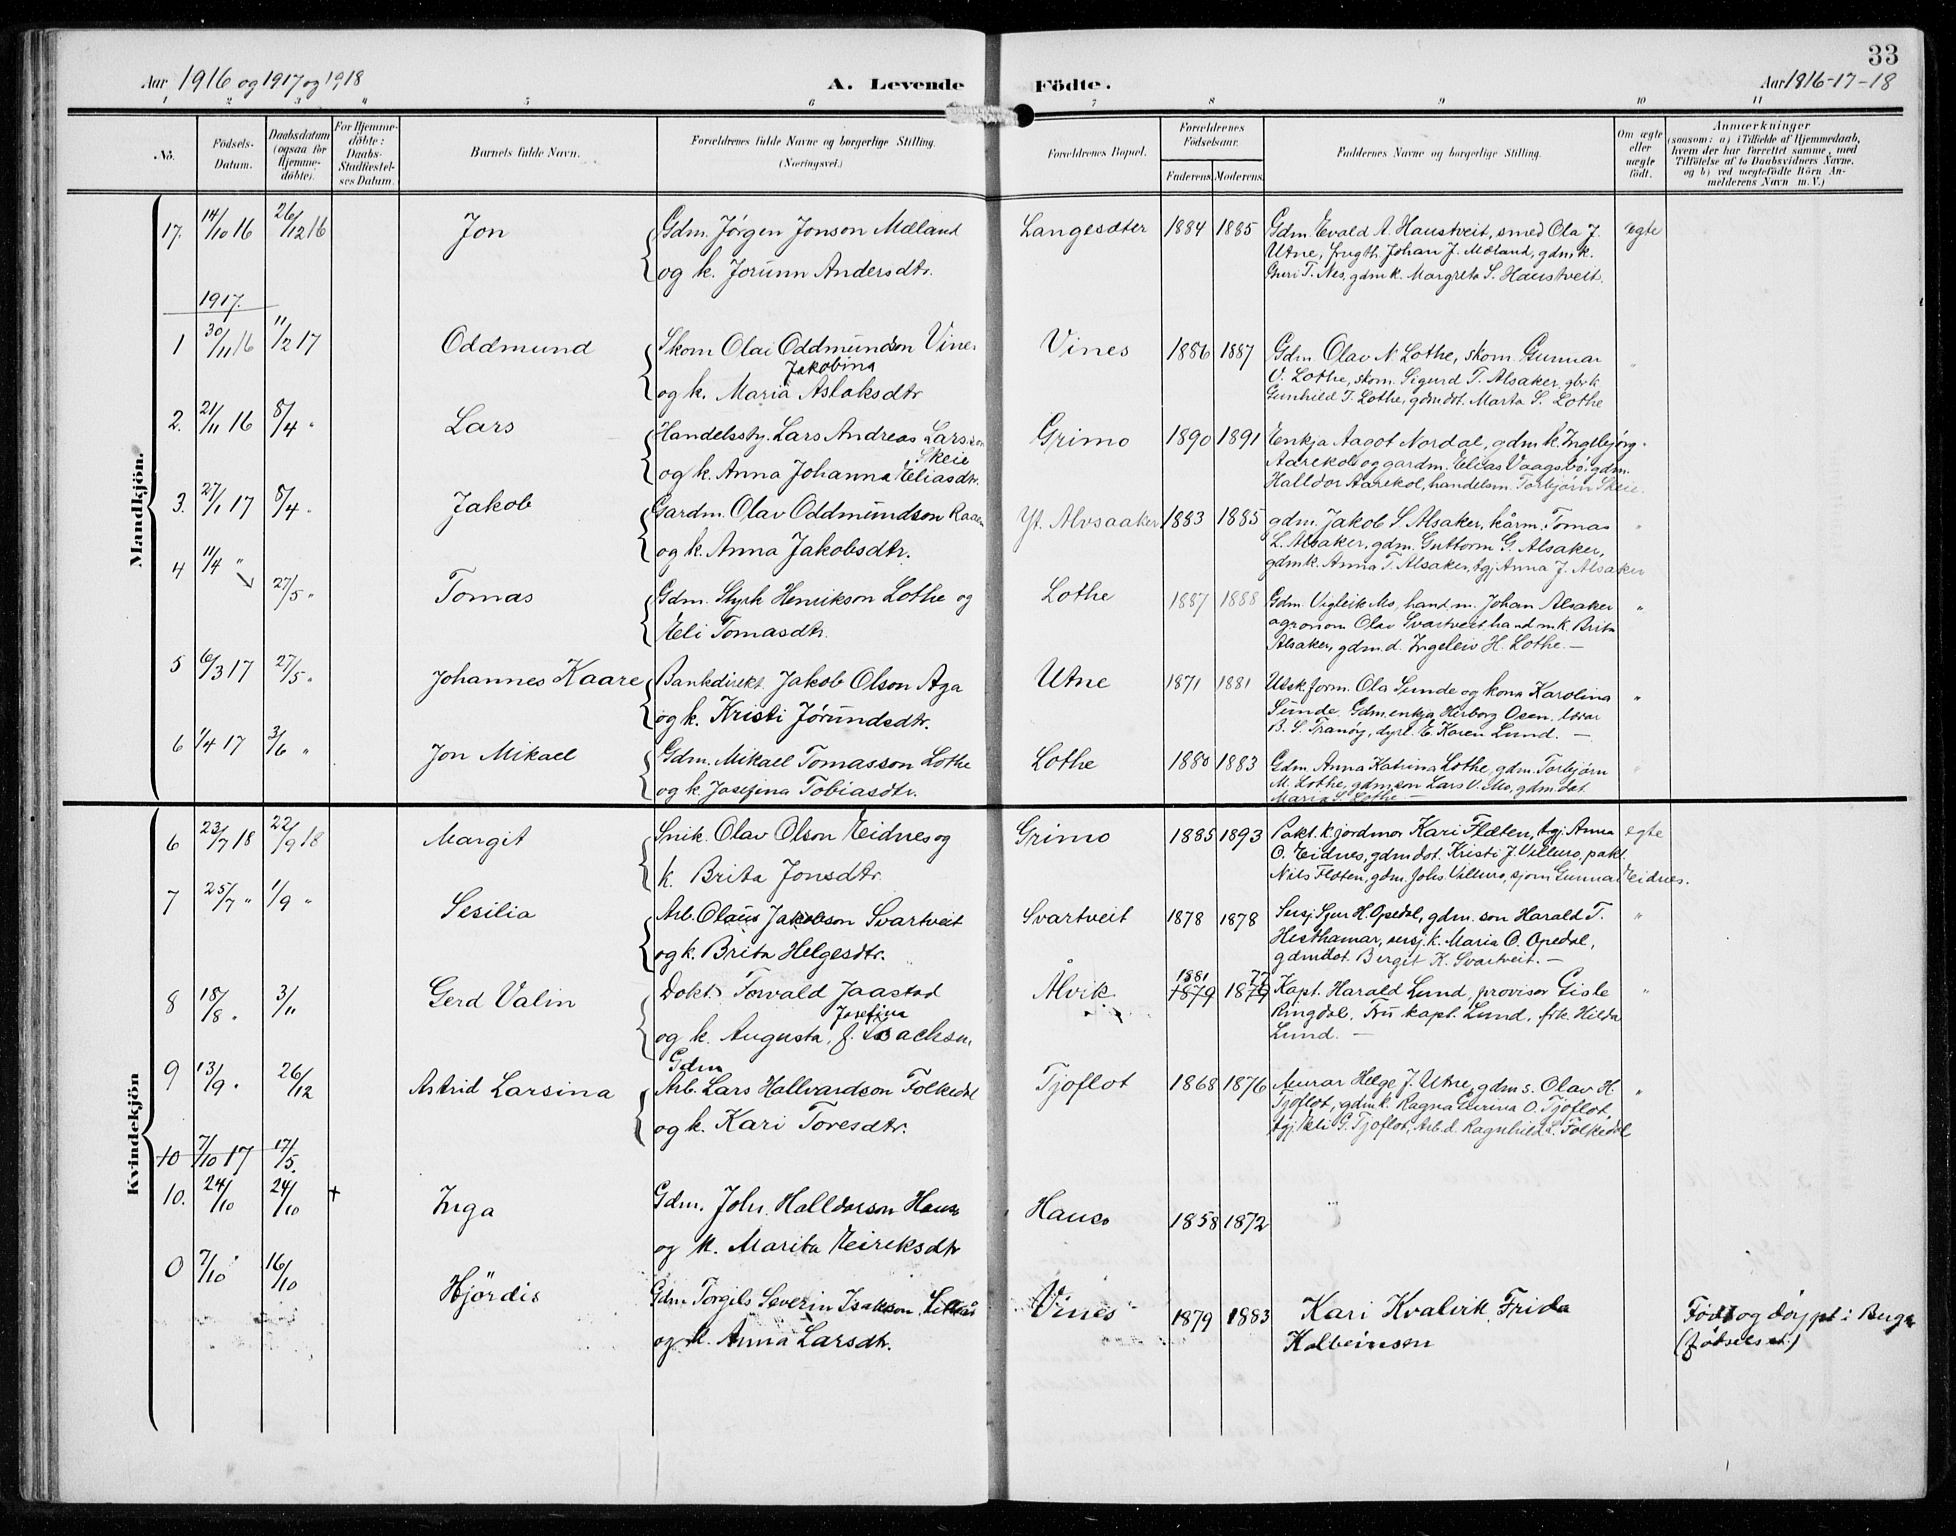 33
Aar 1916 og 1917 og 1918 A. Levende Födte. Aar 1816-17-18
1 2 3 4 5 6 7 8 9 10 11
No. Födsels-Datum. Daabsdatum (ogsaa for Hjemmedöbte). For Hjemmedöbte: Daabs-Stadfæstelses Datum. Barnets fulde Navn. Forældrenes fulde Navne og borgerlige Stilling. (Næringsvei.) Forældrenes Bopæl. Forældrenes Födselsaar. Faderens. Moderens. Faddernes Navne og borgerlige Stilling. Om ægte eller uægte födt. Anmærkninger
(saasom: a) i Tilfælde af Hjemmedaab,
hvem der har forrettet samme, med
Tilföielse af to Daabsvidners Navne,
og b) ved uægtefödte Börn Anmelderens Navn m. V.)
Mandkjön.
17. 14/10 16 26/12 16 Jon Gdm. Jørgen Jonson Mæland Langesæter 1884 1885 Gdm. Evald A. Haustveit, smed Ola J. egte
og k. Jorunn Andersdtr. Utne, ungk. Johan J. Mæland, gdm.k.
Guri T. Nes, gdmk. Margreta S. Haustveit.
1917.
1 30/11 16 11/2 17 Oddmund Skom Olai Oddmundson Vines Vines 1886 1887 Gdm Olav N. Lothe, skom. Gunnar "
Jakobina V. Lothe, skom. Sigurd T. Alsaker, gbr k.
og k. Maria Aslaksdtr Gunhild T. Lothe, gdmdot. Marta S. Lothe
2. 21/11 16 8/4 " Lars Handelssty. Lars Andreas Larsson Grimo 1890 1891 Enkja Aagot Nordal, gdm k. Ingebjørg
Skeie Aarekol og gardm. Elias Vaagsbø, gdm.
og k. Anna Johanna Eliasdtr. Halldor Aarekol, handelsm. Torbjørn Skeie.
3. 27/1 17 8/4 " Jakob Gardm. Olav Oddmundson Raaen Yt. Alvsaaker 1883 1885 gdm. Jakob S Alsaker, kårm. Tomas "
og k. Anna Jakobsdtr. L. Alsaker, gdm. Guttorm G. Alsaker,
gdmk. Anna T. Alsaker, tgj Anna J. Alsaker
4 11/4 " 27/5 " Tomas Gdm. Styrk Henrikson Lothe og Lothe 1887 1888 Gdm. Vigleik Mo, hand.m. Johan Alsaker "
Eli Tomasdtr. agronom Olav Svartveit handm.k. Brita
Alsaker, gdm.d. Ingeleiv H. Lothe. —
5 6/3 17 27/5 " Johannes Kaare Bankdirekt. Jakob Olson Aga Utne 1871 1881 Utsk.form. Ola Sunde og kona Karolina "
og k. Kristi Jørundsdtr. Sunde. Gdm.enkja Herborg Osen. lærar
B. S. Tranøy, dyrl. E. Karen Lund. —
6 1/4 17 3/6 " Jon Mikael Gdm. Mikael Tomasson Lothe Lothe 1880 1883 Gdm. Anna Katrina Lothe, gdm. Torbjørn "
og k. Josefina Tobiasdtr. M. Lothe, gdmson Lars V. Mo, gdm.dot
Maria S. Lothe —
Kvindekjön
6 23/7 18 22/9 18 Margit Snik. Olav Olson Eidnes og Grimo 1885 1893 Pakt. k. jordmor Kari Flæten, tgj Anna egte
k. Brita Jonsdtr. O. Eidnes, gdmdot. Kristi J. Villuro, pakt.
Nils Flæten, gdm. Johs. Villuro, sjom Gunnar Eidnes.
7 25/7 " 1/9 " Sesilia Arb. Olaus Jakobson Svartveit Svartveit 1878 1878 Sersj. Sjur H. Opedal, gdm. son Harald T. "
og k. Brita Helgesdtr. Hesthamar, sersj. k. Maria O. Opedal,
gdmdot Bergit K. Svartveit. —
8 18/8 " 3/11 Gerd Valin Dokt. Torvald Jaastad Ålvik 1881 1879 77 1879 Kapt. Harald Lund, provisor Gisle "
Josefina Ringdal, Fru kapt. Lund, frk. Hilda
og k. Augusta, f. Isachsen Lund. —
9 13/9 " 26/12 Astrid Larsina Gdm Arb. Lars Hallvardson Folkedal Tjoflot 1868 1876 Murar Helge J. Utne, gdm s. Olav H. "
og k. Kari Toresdtr. Tjoflot, gdmk. Ragna Eirina O. Tjoflot,
tgj. Eli G. Tjoflot, Arb.d. Ragnhild L. Folkedal
10 7/10 17 17/5.
10. 24/10 24/10 + Inga Gdm. John. Halldorson Hauso Hauso 1858 1872
og k. Marita Eireksdtr
0 7/10 " 16/10 Hjördis Gdm Torgils Severin Isakson Vines 1879 1883 Kari Kvalvik, Frida Födt og döypt i Berge
og k. Anna Larsdtr. Kolbeinsen (födselsst.)